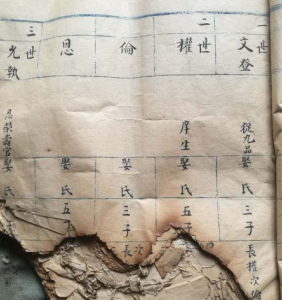 一世 文登 從九品娶 氏 三子 長權次倫
二世 權 庠生娶 氏 五子
倫 娶 氏 三子 長次
恩 娶 氏 五子
三世 允執 恩榮壽官娶 氏